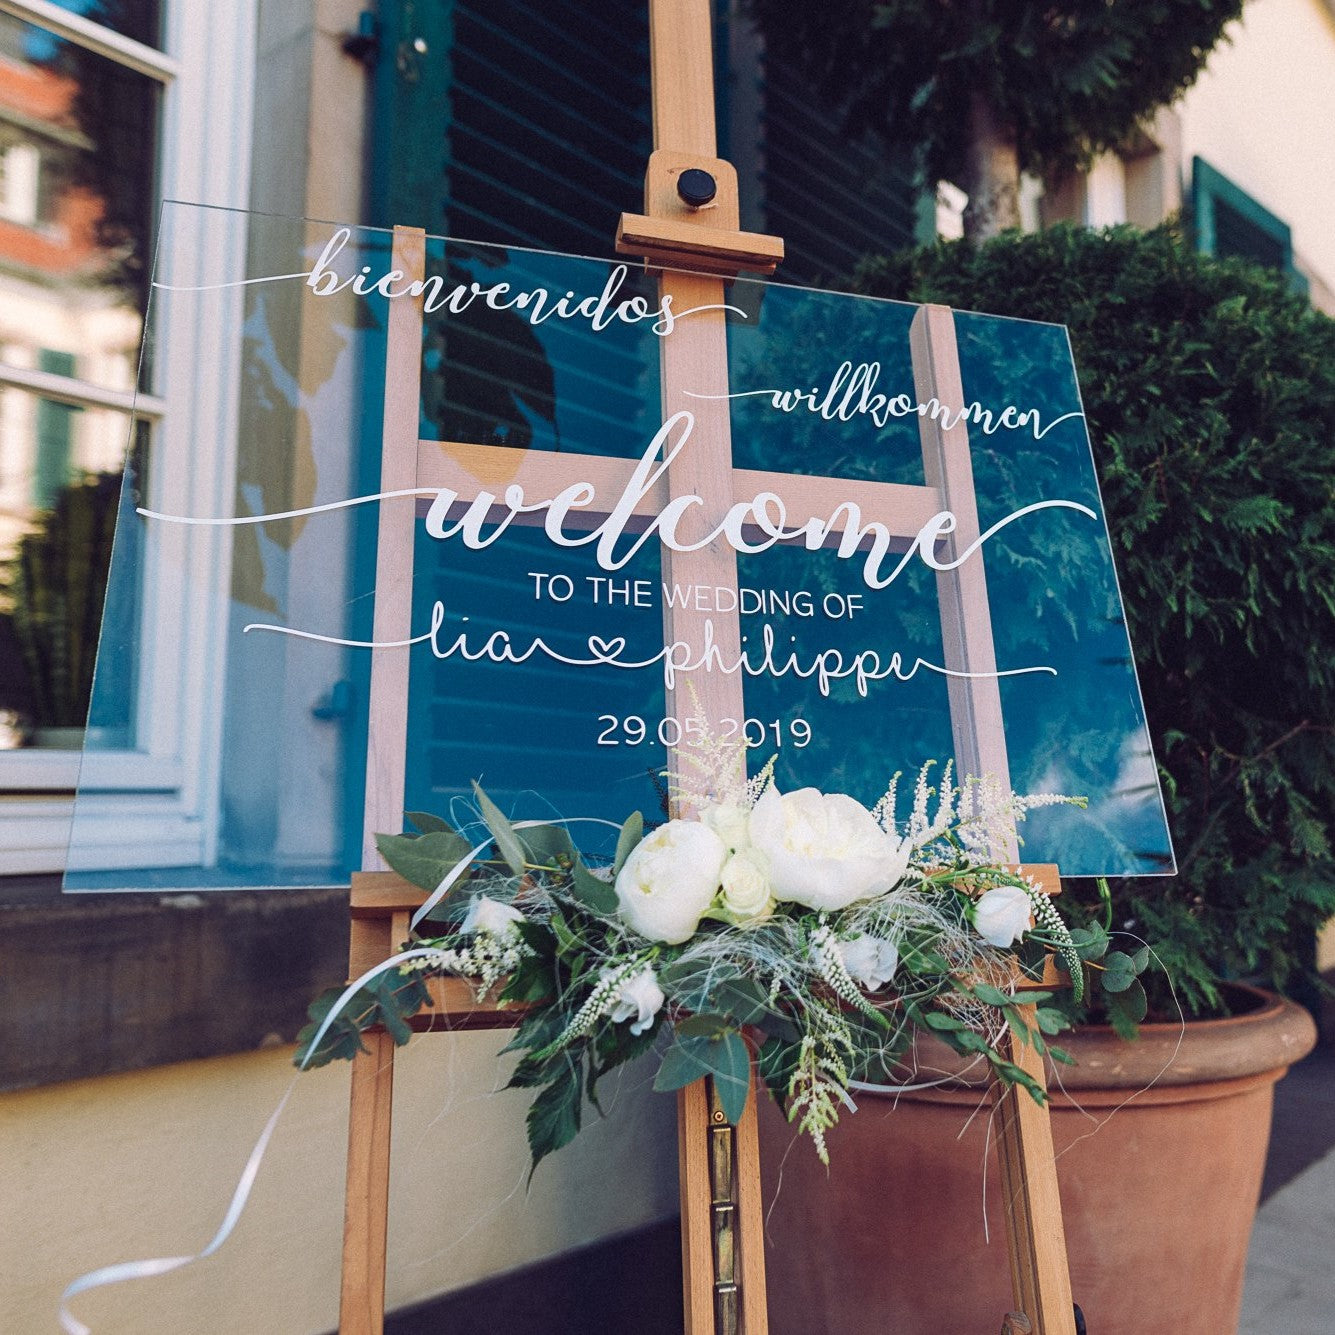 bienvenidos
willkommen
welcome
TO THE WEDDING OF
lia ♡ philippe
29.05.2019